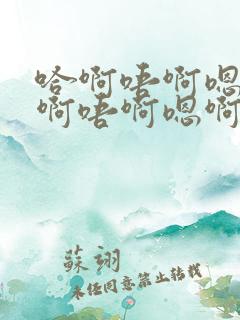 哈啊唔啊嗯
啊唔啊嗯啊
蘇翊
未经同意禁止转载